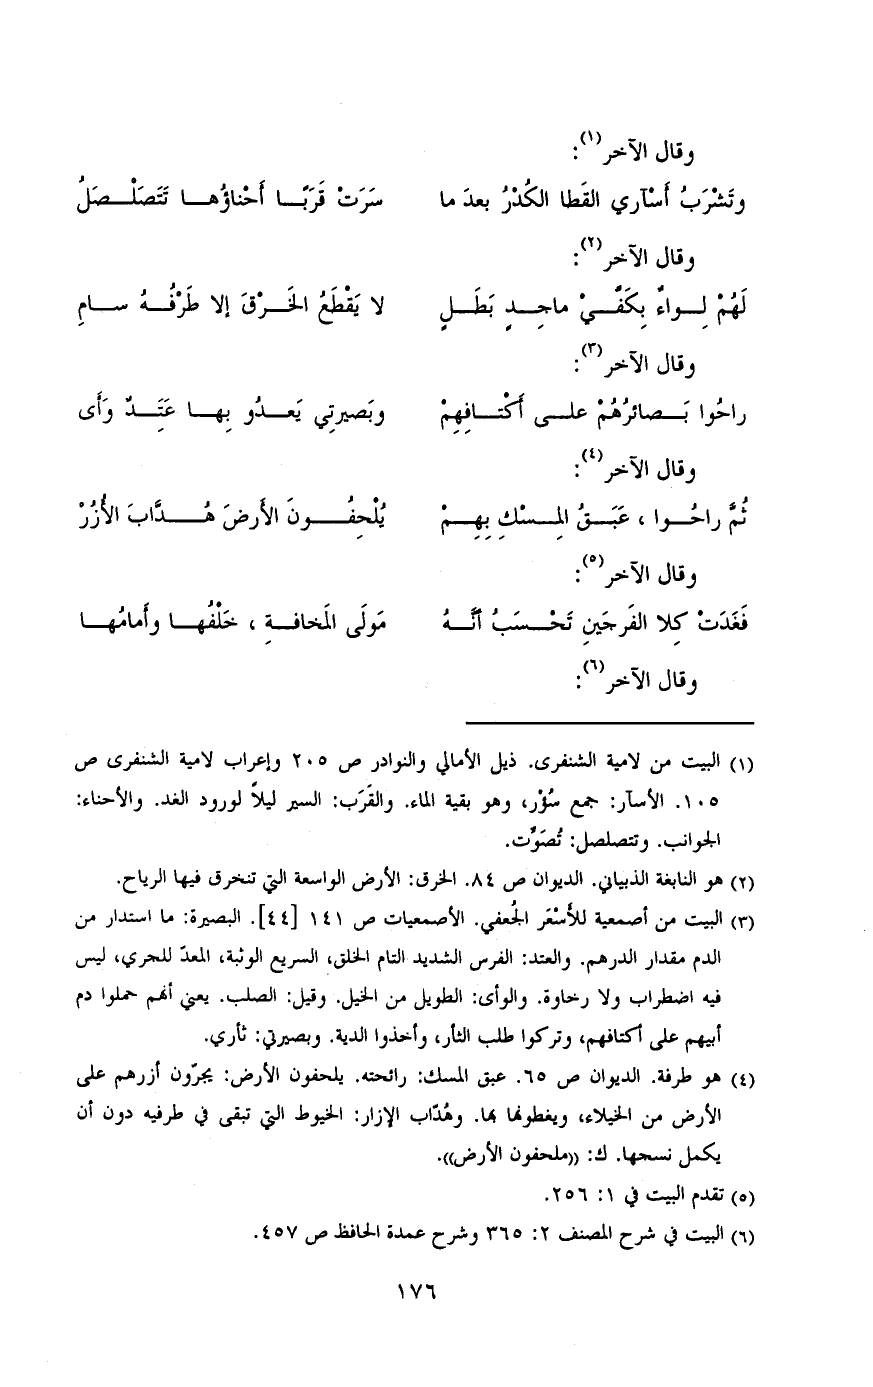 وقال الآخر(١):
وتَشْرَبُ أَسْآري القَطا الكُدْرُ بعدَ ما سَرَتْ قَرَبًا أَحْناؤُها تَتَصَلْصَلُ
وقال الآخر(٢):
لَهُمْ لِواءٌ بِكَفَّيْ ماجِدٍ بَطَلٍ لا يَقْطَعُ الخَرْقَ إلا طَرْفُهُ سامِ
وقال الآخر(٣):
راحُوا بَصائرُهُمْ على أَكْتافِهِمْ وبَصيرتِي يَعدُو بِها عَتِدٌ وَأَى
وقال الآخر(٤):
ثُمَّ راحُوا ، عَبَقُ المِسْكِ بِهِمْ يُلْحِفُونَ الأَرضَ هُدَّابَ الأُزُرْ
وقال الآخر(٥):
فَغَدَتْ كِلا الفَرجَينِ تَحْسَبُ أنَّهُ مَولَى المَخافةِ ، خَلْفُها وأَمامُها
وقال الآخر(٦):
(١) البيت من لامية الشنفرى. ذيل الأمالي والنوادر ص ٢٠٥ وإعراب لامية الشنفرى ص
١٠٥. الأسآر: جمع سُؤْر، وهو بقية الماء. والقَرَب: السير ليلاً لورود الغد. والأحناء:
الجوانب. وتتصلصل: تُصَوِّت.
(٢) هو النابغة الذبياني. الديوان ص ٨٤. الخرق: الأرض الواسعة التي تنخرق فيها الرياح.
(٣) البيت من أصمعية للأَسْعَر الجُعفي. الأصمعيات ص ١٤١ [٤٤]. البصيرة: ما استدار من
الدم مقدار الدرهم. والعتد: الفرس الشديد التام الخلق، السريع الوثبة، المعدّ للجري، ليس
فيه اضطراب ولا رخاوة. والوأى: الطويل من الخيل. وقيل: الصلب. يعني أنهم حملوا دم
أبيهم على أكتافهم، وتركوا طلب الثأر، وأخذوا الدية. وبصيرتي: ثأري.
(٤) هو طرفة. الديوان ص ٦٥. عبق المسك: رائحته. يلحفون الأرض: يجرّون أزرهم على
الأرض من الخيلاء، ويغطونها بها. وهُدّاب الإزار: الخيوط التي تبقى في طرفيه دون أن
يكمل نسجها. ك: ((ملحفون الأرض)).
(٥) تقدم البيت في ١: ٢٥٦.
(٦) البيت في شرح المصنف ٢: ٣٦٥ وشرح عمدة الحافظ ص ٤٥٧.
١٧٦